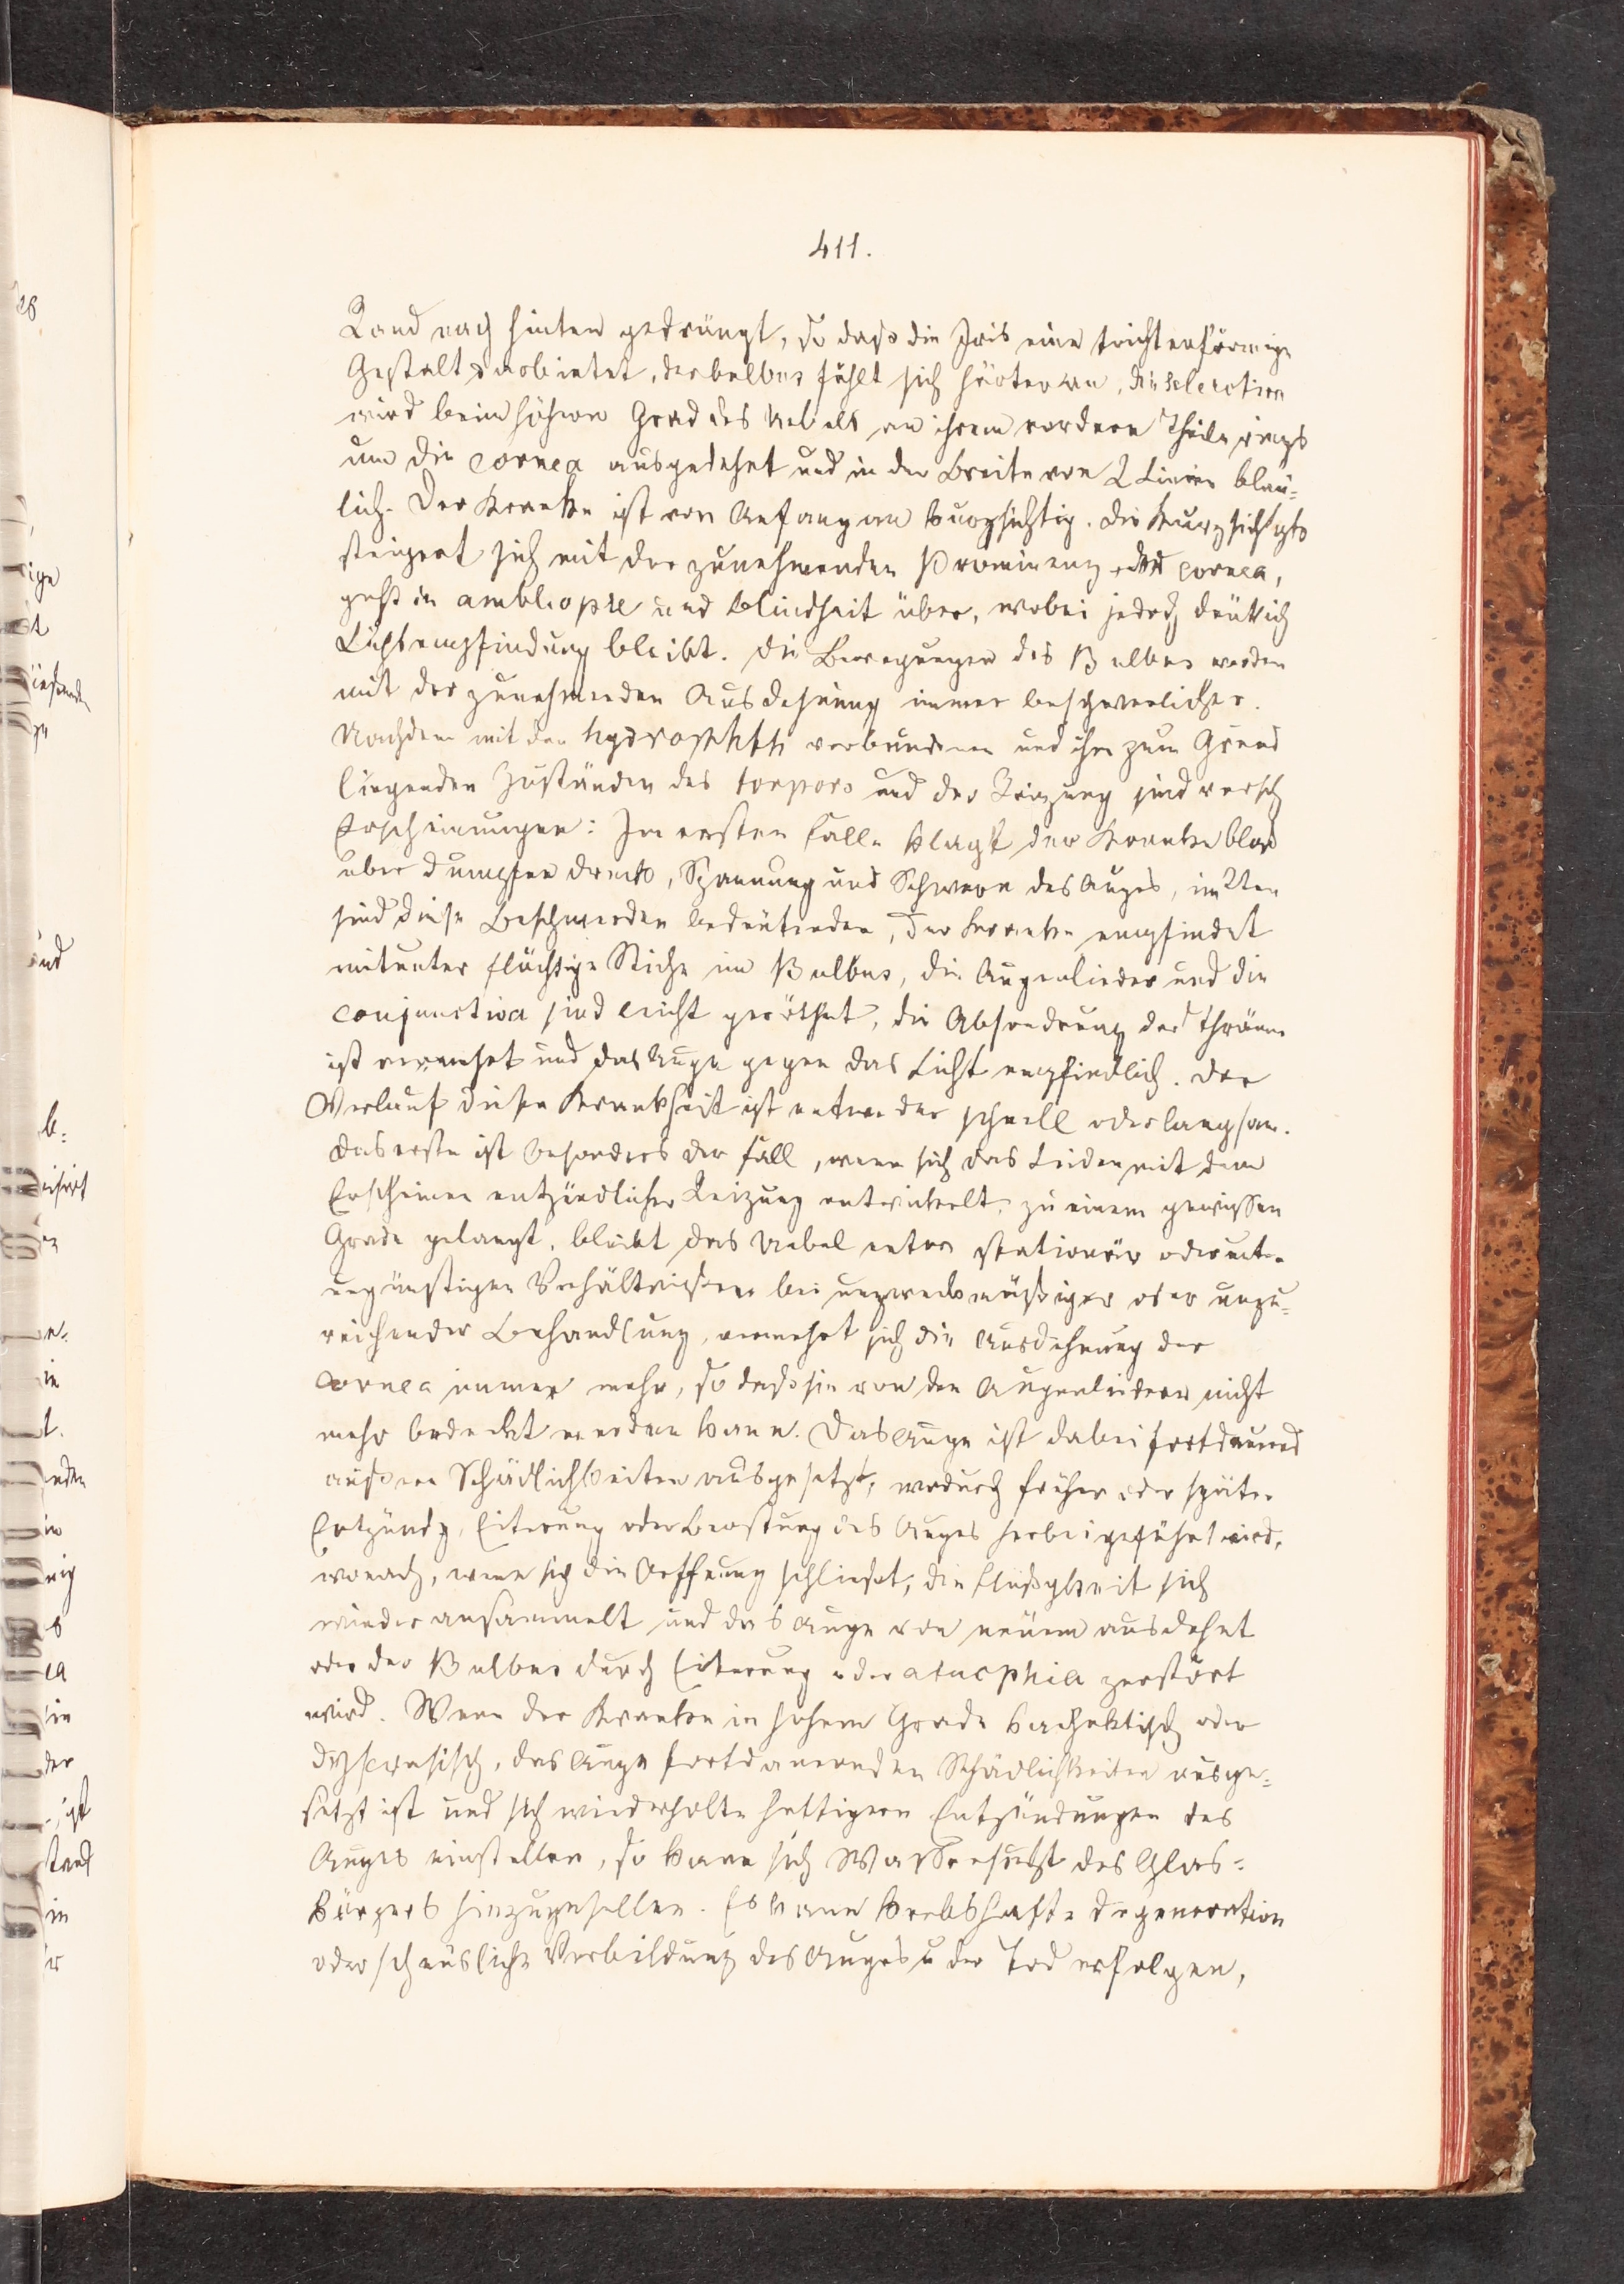 411.
Rand nach hinten gedrängt, so daß die Iris eine trichterförmige
Gestalt darbietet, der bulbus fühlt sich härter an, die sclerotica
wird beim höhern Grad des Uebels an ihrem vordern Theile rings
um die cornea ausgedehnt und in der Breite von 2 Linien bläu-
lich. Der Kranke ist von Anfang an kurzsichtig. Die Kurzsichtgk
steigert sich mit der zunehmenden Prominenz der cornea,
geht in ambliopie und Blindheit über, wobei jedoch deutlich
Lichtempfindung bleibt. Die Bewegungen des Bulbus werden
mit der zunehmenden Ausdehnung immer beschwerlicher.
Nachdem mit der hydrophth verbundenen und ihr zum Grund
liegenden Zuständen des torpors und der Reizung sind versch
Erscheinungen: Im ersten Falle klagt der Kranke blos
über dumpfen Druck, Spannung und Schwere des Auges, im 2ten
sind diese Beschwerden bedeutender, der Kranke empfindet
mitunter flüchtige Stiche im Bulbus, die Augenlieder und die
conjunctiva sind leicht geröthet, die Absondrung der Thränen
ist vermehrt und das Auge gegen das Licht empfindlich. Der
Verlauf dieser Krankheit ist entweder schnell oder langsam.
Das erste ist besonders der Fall, wenn sich das Leiden mit dem
Erscheinen entzündlicher Reizung entwickelt. zu einem gewissen
Grade gelangt, bleibt das Uebel entw stationär oder unter
ungünstigen Verhältnissen bei unzweckmäßiger oder unzu-
reichender Behandlung, vermehrt sich die Ausdehnung der
Cornea immer mehr, so daß sie von den Augenliedern nicht
mehr bedeckt werden kann. Das Auge ist dabei fortdaurend
äußeren Schädlichkeiten ausgesetzt, wodurch früher oder später
Entzündg, Eiterung oder Berstung des Auges herbeigeführt wird,
wonach, wenn sich die Oeffnung schließt, die Flüßigkeit sich
wieder ansammelt und das Auge von neuem ausdehnt
oder der Bulbus durch Eiterung oder zerstört
wird. Wenn der Kranke in hohem Grade kachektisch oder
dyscrasisch, das Auge fortdauernden Schädlichkeiten ausge-
setzt ist und sich wiederholte heftigere Entzündungen des
Auges einstellen, so kann sich Wassersucht des Glas-
körpers hinzugesellen. Es kann krebshafte degeneration
oder scheusliche Verbildung des Auges u der Tod erfolgen,